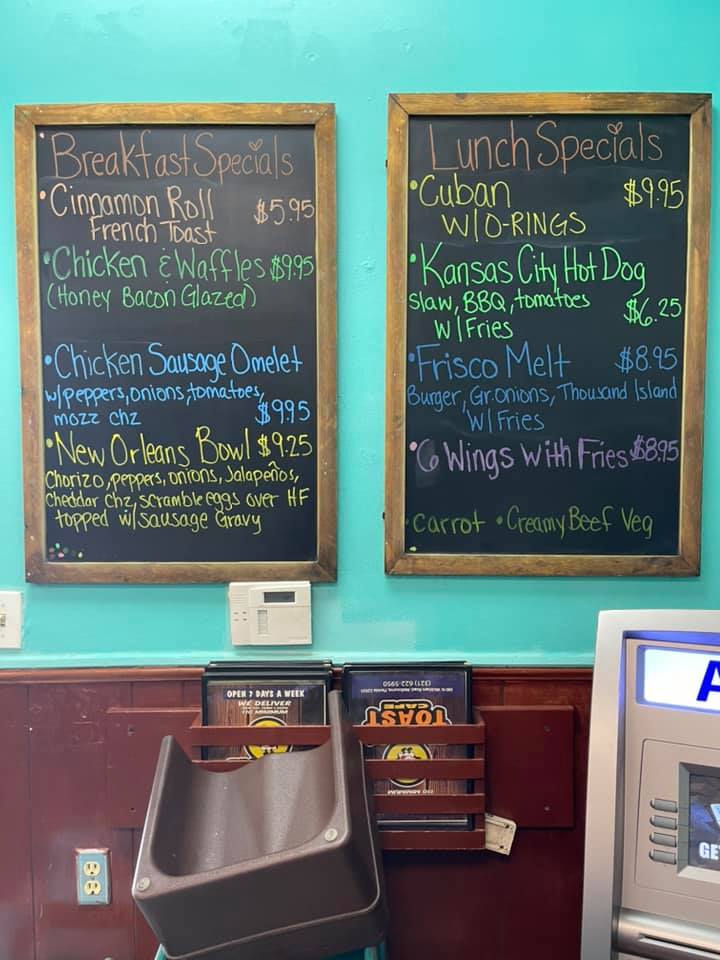 Breakfast Specials
• Cinnamon Roll $5.95
French Toast
• Chicken & Waffles $9.95
(Honey Bacon Glazed)
• Chicken Sausage Omelet
w/peppers, onions, tomatoes,
mozz chz $9.95
• New Orleans Bowl $9.25
Chorizo, peppers, onions, Jalapeños,
cheddar chz, scramble eggs over HF
topped w/sausage Gravy
Lunch Specials
• Cuban $9.95
W/O-RINGS
• Kansas City Hot Dog
Slaw, BBQ, tomatoes $6.25
W/Fries
• Frisco Melt $8.95
Burger, Gr. onions, Thousand Island
W/Fries
• 6 Wings with Fries $8.95
• carrot • Creamy Beef Veg
OPEN 7 DAYS A WEEK
WE DELIVER
(321) 622-5950
TOAST
CAFE
NO MINIMUM
A
GE